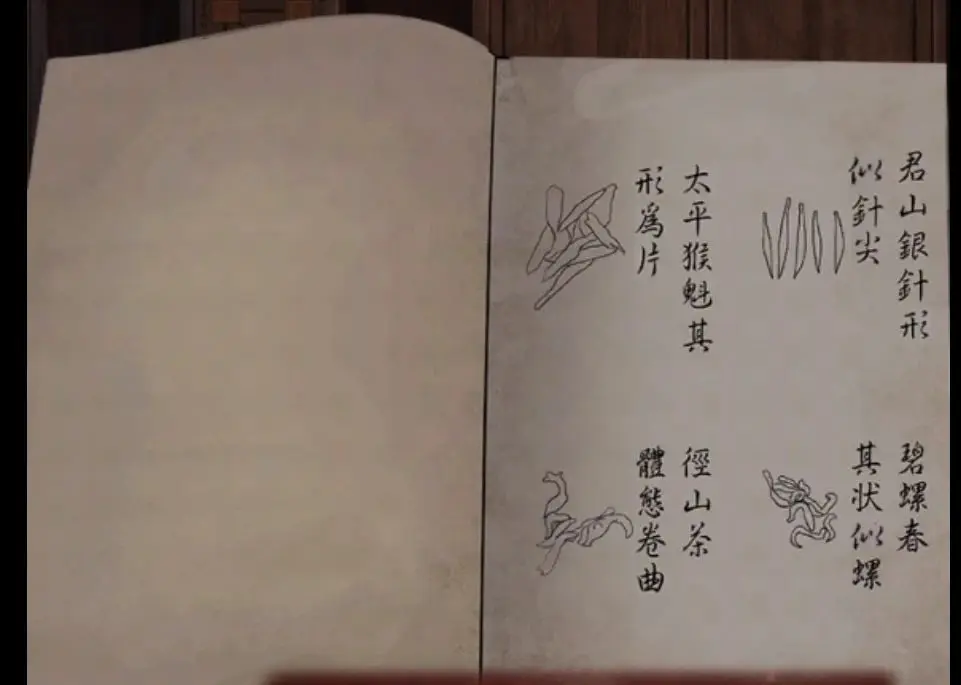 君山銀針形
似針尖
碧螺春
其状似螺
太平猴魁其
形為片
徑山茶
體態卷曲